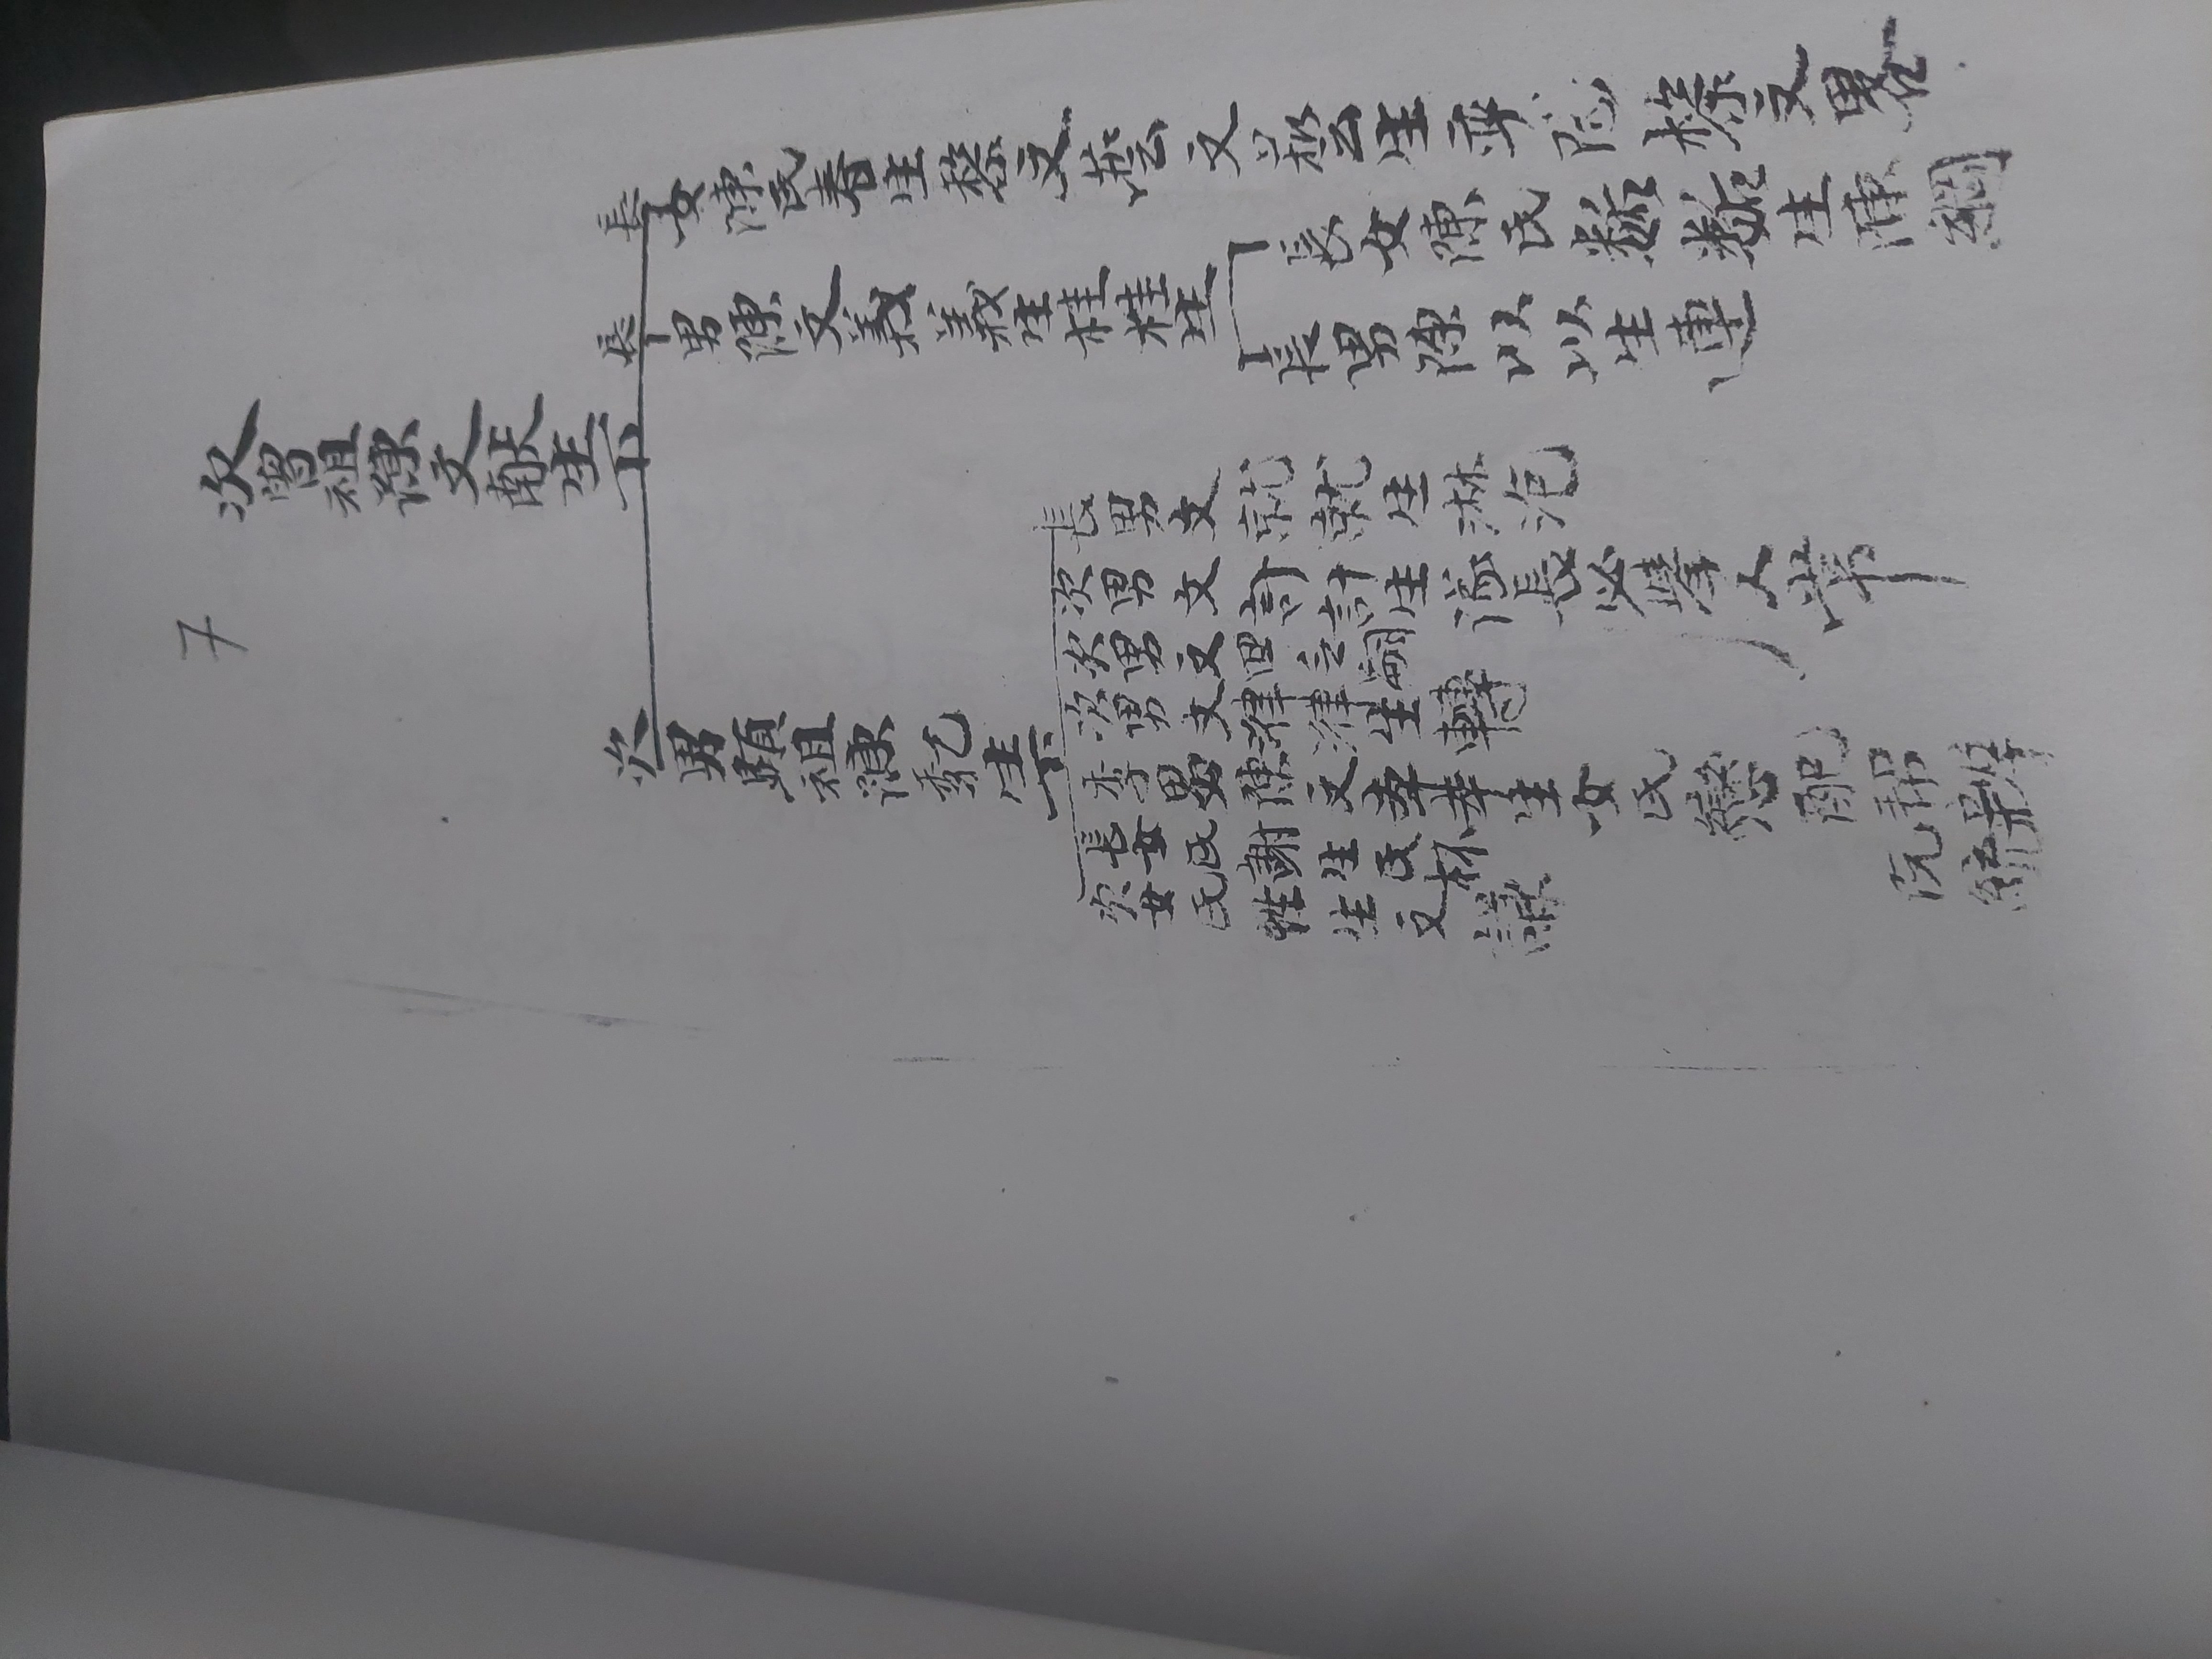 7
次曾祖陳文献生下
長女陳氏春生黎文藝文藝生 黎文畧
長男陳文義義生桂桂生
長女陳氏 生陳綱
長男陳以以生連
次男顯祖陳 生下
長男文就就生淋泡
次男文計計生 長必舉人常
次男文 之嗣
次男文律律生轉
季男陳文 生女氏戀配帮辦
阮統
長女氏謝生氏杯
次女氏性生文議